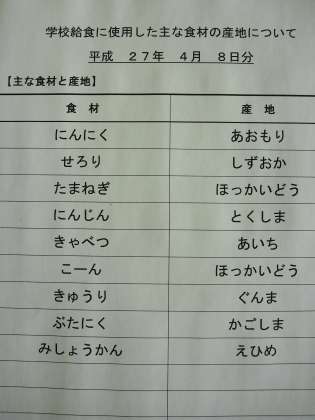 学校給食に使用した主な食材の産地について
平成　２７年　４月　８日分
【主な食材と産地】
食　材　産　地
にんにく　あおもり
せろり　しずおか
たまねぎ　ほっかいどう
にんじん　とくしま
きゃべつ　あいち
こーん　ほっかいどう
きゅうり　ぐんま
ぶたにく　かごしま
みしょうかん　えひめ